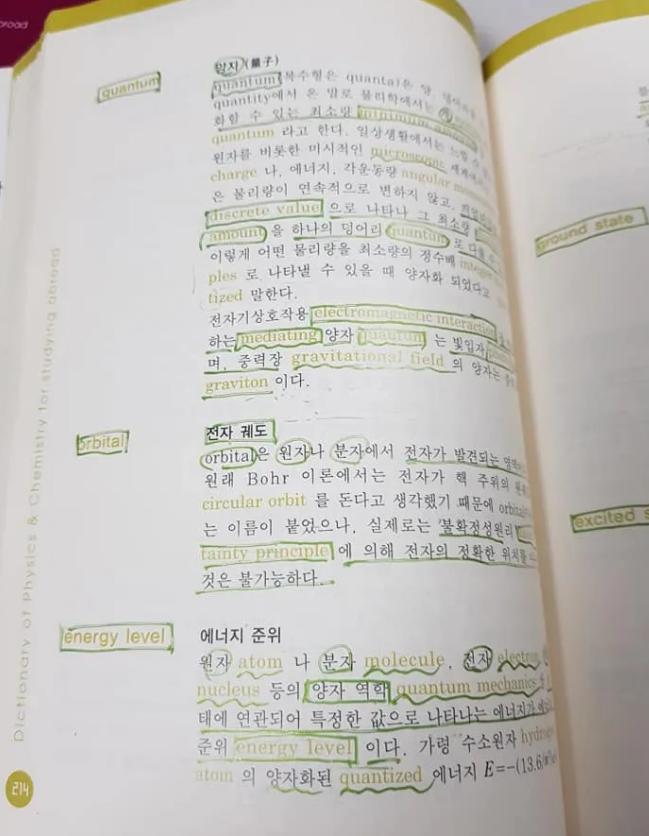 road
quantum
양자(量子)
quantum(복수형은 quanta)은 양,
quantity에서 온 말로 물리학에서는
화할 수 있는 최소량 minimum
quantum 라고 한다. 일상생활에서는
원자를 비롯한 미시적인 microscopic
charge 나, 에너지, 각운동량 angular
은 물리량이 연속적으로 변하지 않고,
discrete value 으로 나타나 그 최소량
amount 을 하나의 덩어리 quantum 로
이렇게 어떤 물리량을 최소량의 정수배 integer
ples 로 나타낼 수 있을 때 양자화 되었다고
tized 말한다.
전자기상호작용 electromagnetic interaction
하는 mediating 양자 quantum 는 빛입자
며, 중력장 gravitational field 의 양자는
graviton 이다.
orbital
전자 궤도
orbital은 원자나 분자에서 전자가 발견되는
원래 Bohr 이론에서는 전자가 핵 주위의
circular orbit 를 돈다고 생각했기 때문에 orbital
는 이름이 붙었으나, 실제로는 불확정성원리
tainty principle 에 의해 전자의 정확한 위치를
것은 불가능하다.
energy level
에너지 준위
원자 atom 나 분자 molecule, 전자 electron,
nucleus 등의 양자 역학 quantum mechanics
태에 연관되어 특정한 값으로 나타나는 에너지가
준위 energy level 이다. 가령 수소원자
atom 의 양자화된 quantized 에너지 E=-(13.6/
Dictionary of Physics & Chemistry for studying abroad
214
ground state
excited s